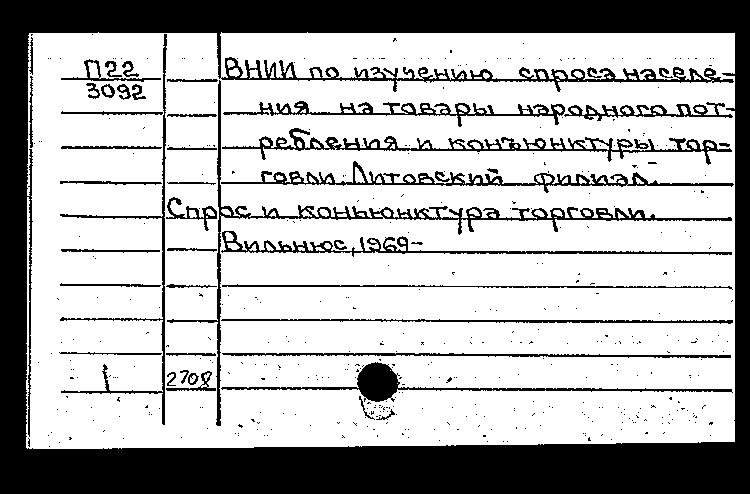 П22
3092
ВНИИ по изучению спроса населе-
ния на товары народного пот-
ребления и конъюнктуры тор-
говли. Литовский филиал.
Спрос и коньюнктура торговли.
Вильнюс, 1969-
1 2708